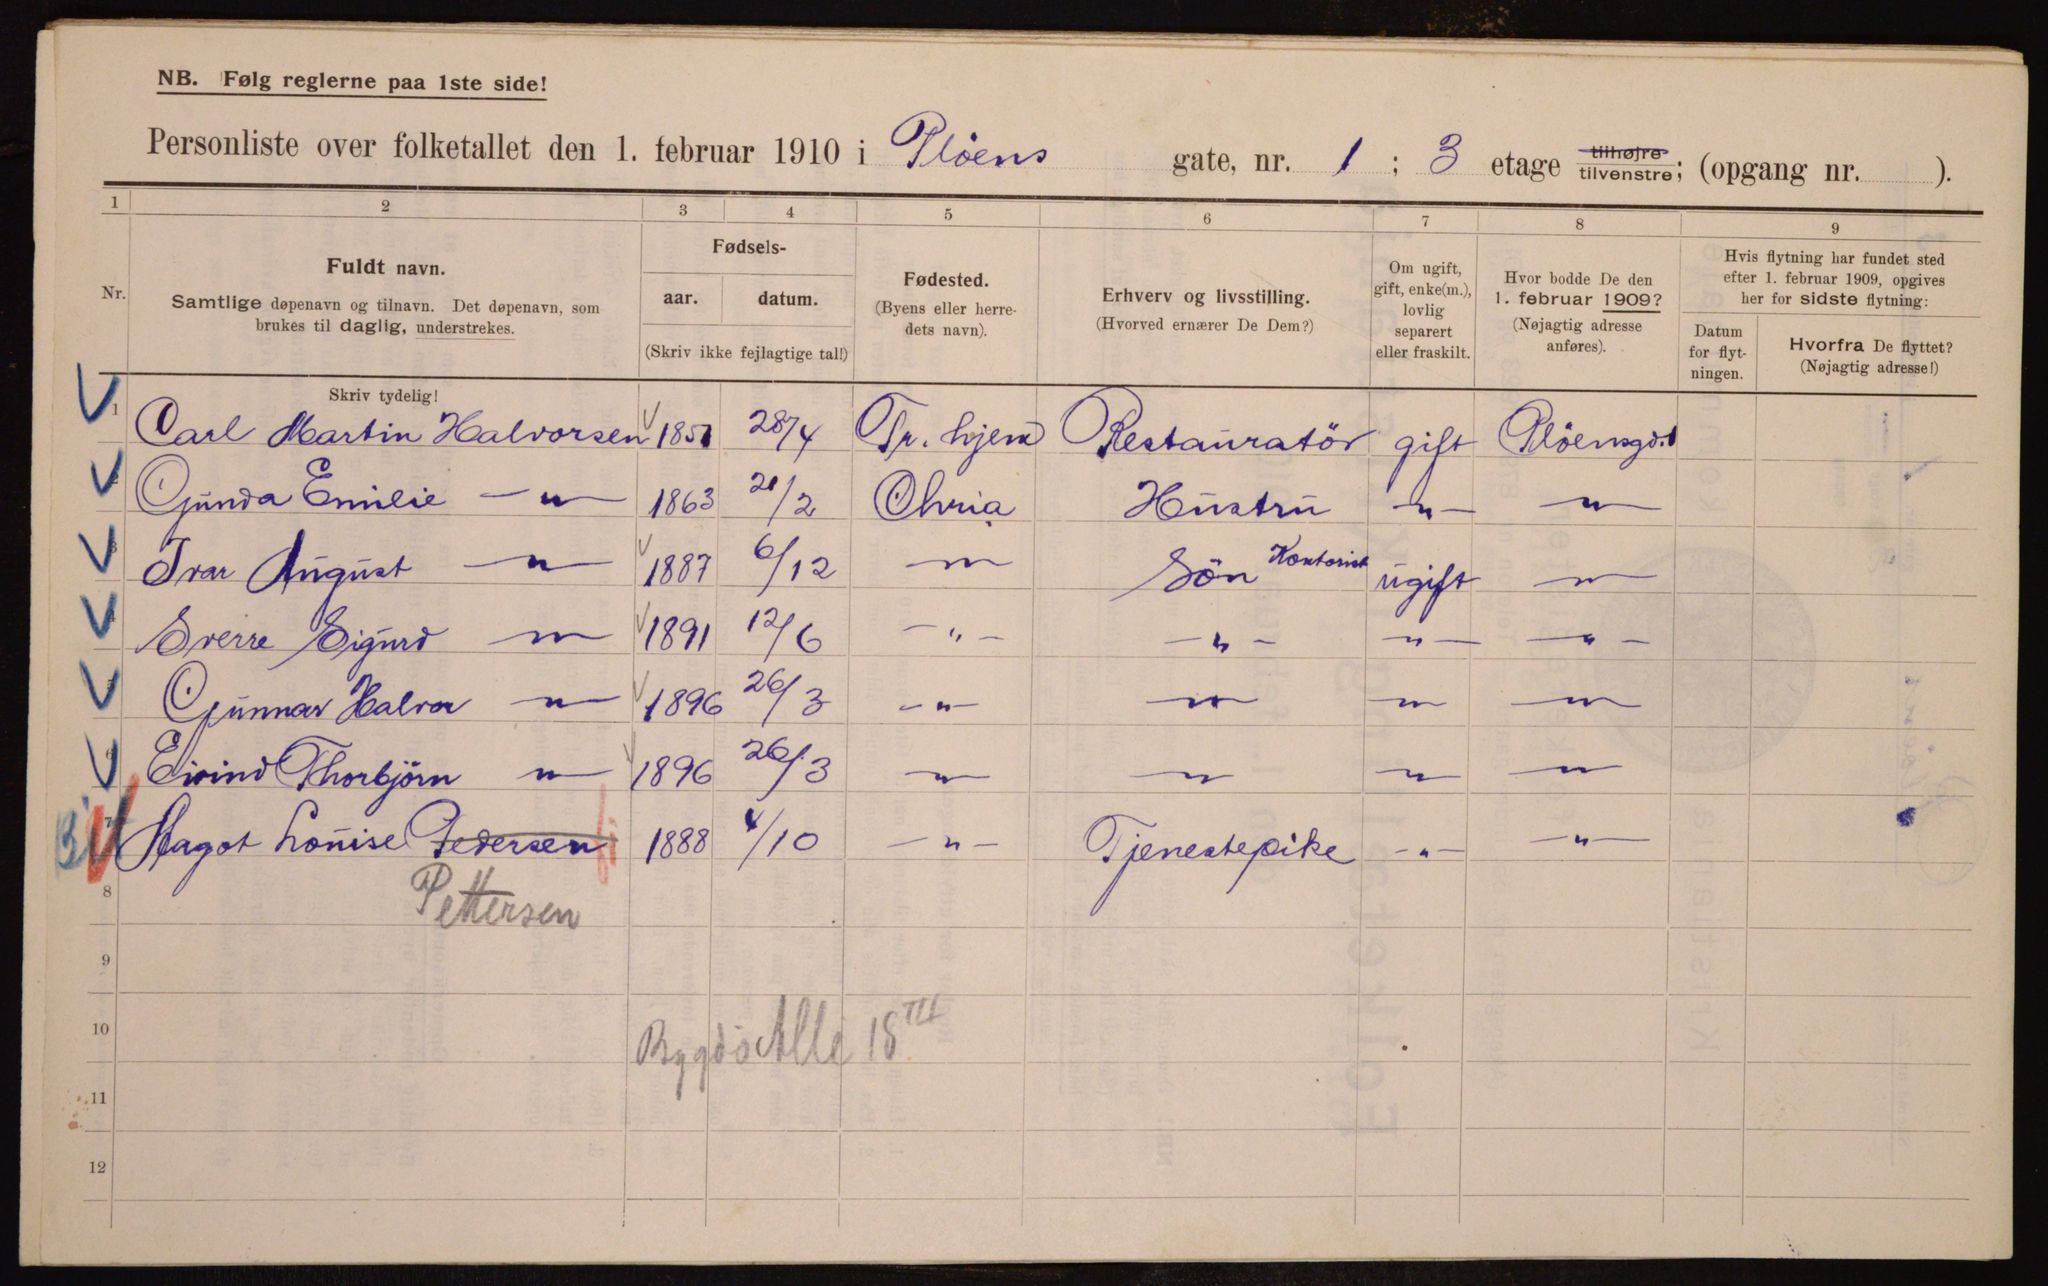 NB. Følg reglerne paa 1ste side!
Personliste over folketallet den 1. februar 1910 i Plöens gate, nr. 1 ; 3 etage tilhøjre tilvenstre; (opgang nr. ).
1 2 3 4 5 6 7 8 9
Nr.
Fuldt navn.
Samtlige døpenavn og tilnavn. Det døpenavn, som
brukes til daglig, understrekes.
Fødsels-
aar. datum.
(Skriv ikke fejlagtige tal!)
Fødested.
(Byens eller herre-
dets navn).
Erhverv og livsstilling.
(Hvorved ernærer De Dem?)
Om ugift,
gift, enke(m.),
lovlig
separert
eller fraskilt.
Hvor bodde De den
1. februar 1909?
(Nøjagtig adresse
anføres).
Hvis flytning har fundet sted
efter 1. februar 1909, opgives
her for sidste flytning:
Datum
for flyt-
ningen.
Hvorfra De flyttet?
(Nøjagtig adresse!)
Skriv tydelig!
1 Carl Martin Halvorsen 1851 28/4 Tr.hjem Restauratör gift Plöensgd. 1
2 Gunda Emilie — " — 1863 /2 Chria Hustru — " — — " —
3 Ivar August — " — 1887 6/12 — " — Sön Kontorist ugift — " —
4 Sverre Sigurd — " — 1891 12/6 — " — — " — — " — — " —
5 Gunnar Halvor — " — 1896 26/3 — " — — " — — " — — " —
6 Eivind Thorbjörn — " — 1896 26/3 — " — — " — — " — — " —
7 Magot Louise Pedersen 1888 4/10 — " — Tjenestepike — " — — " —
8 Pettersen
9
10 Bygdö Alle 18 III
11
12